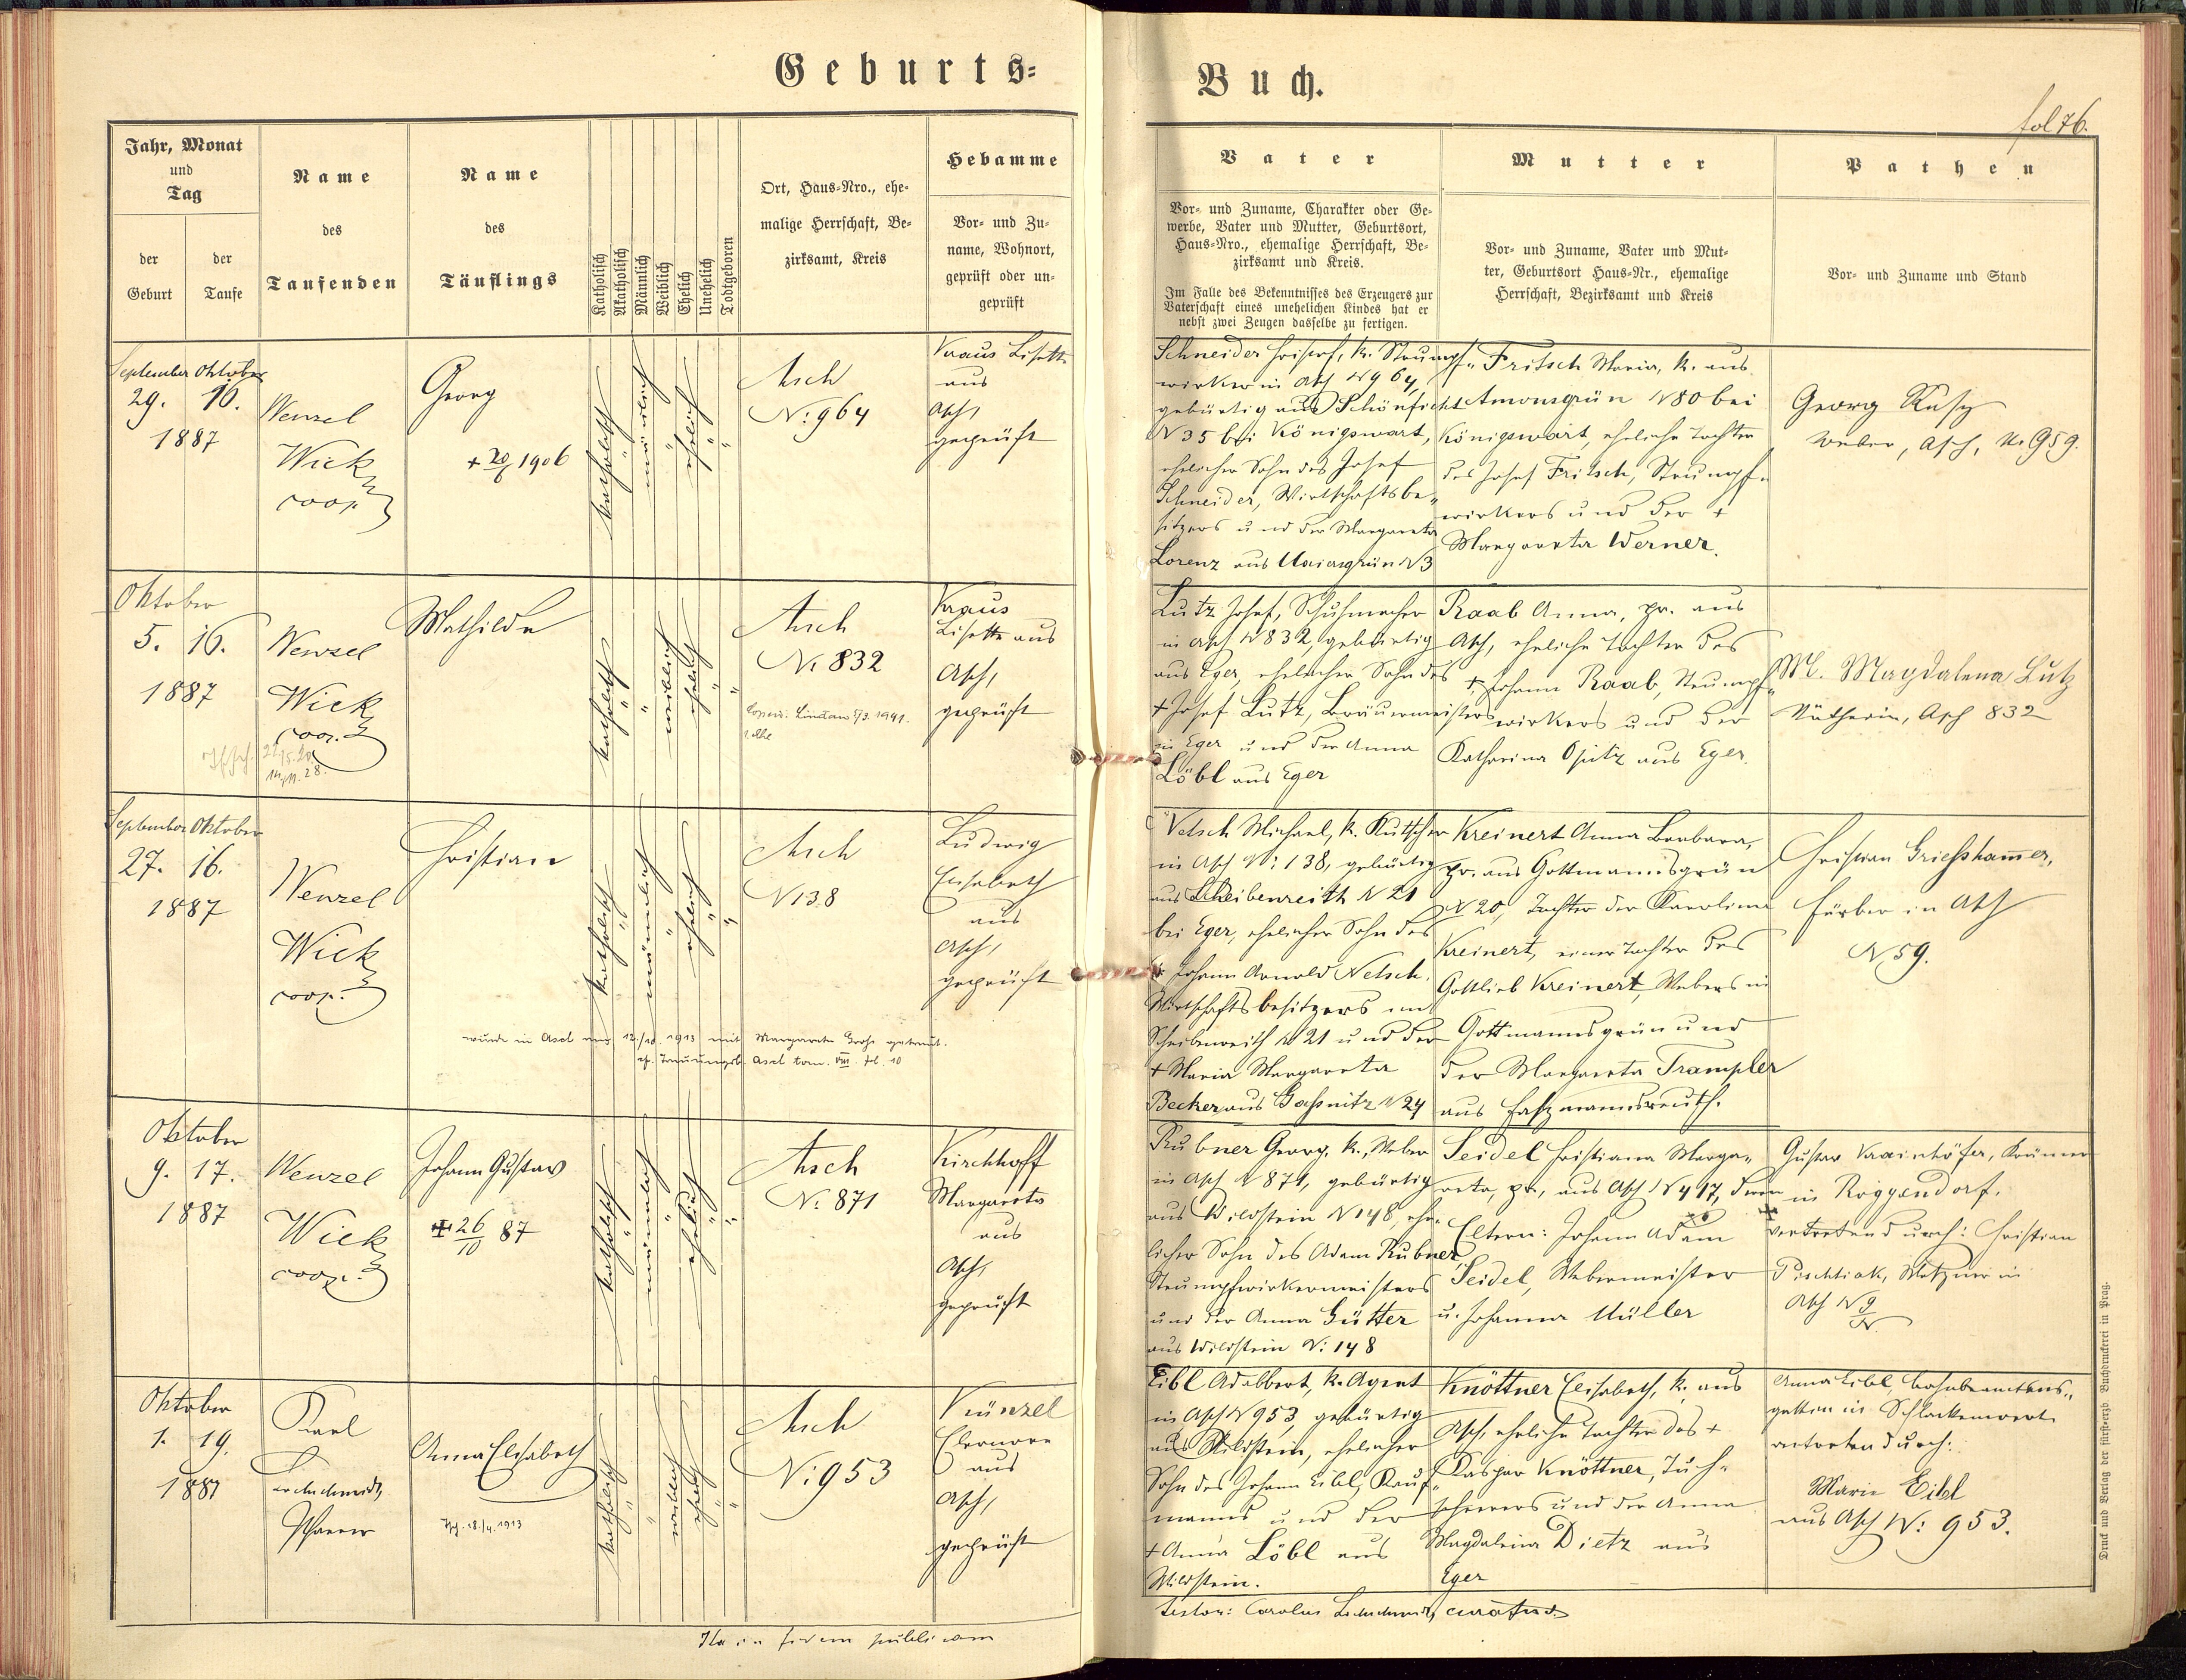 Geburts=
Buch.
fol 76.
Jahr, Monat
und
Tag
der
Geburt
der
Taufe
Name
des
Taufenden
Name
des
Täuflings
Katholisch
Akatholisch
Männlich
Weiblich
Ehelich
Unehelich
Todtgeboren
Ort, Haus-Nro., ehe-
malige Herrschaft, Be-
zirksamt, Kreis
Hebamme
Vor- und Zu-
name, Wohnort,
geprüft oder un-
geprüft
Vater
Vor- und Zuname, Charakter oder Ge-
werbe, Vater und Mutter, Geburtsort,
Haus-Nro., ehemalige Herrschaft, Be-
zirksamt und Kreis.
Im Falle des Bekenntnisses des Erzeugers zur
Vaterschaft eines unehelichen Kindes hat er
nebst zwei Zeugen dasselbe zu fertigen.
Mutter
Vor- und Zuname, Vater und Mut-
ter, Geburtsort Haus-Nr., ehemalige
Herrschaft, Bezirksamt und Kreis
Pathen
Vor- und Zuname und Stand
September Oktober
29. 16.
1887
Wenzel
Wick
coop.
Georg
+ 20/6 1906
katholisch
männlich
ehelich
Asch
N: 964
Kraus Lisette
aus
Asch,
geprüft
Schneider Christof, k. Strumpf-
wirker in Asch N 964,
gebürtig aus Schönficht
N 35 bei Königswart,
ehelicher Sohn des Josef
Schneider, Wirtschaftsbe-
sitzers und der Margareta
Lorenz aus Maiersgrün N 3
Fritsch Maria, k. aus
Amonsgrün N 80 bei
Königswart, eheliche Tochter
des Josef Fritsch, Strumpf-
wirkers und der +
Margareta Werner.
Georg Rusy
Weber, Asch, N: 959.
Oktober
5. 16.
1887
Wenzel
Wick
coop.
Mathilde
katholisch
weiblich
ehelich
Asch
N: 832
Kraus
Lisette aus
Asch,
geprüft
Lutz Josef, Schuhmacher
in Asch N 832, gebürtig
aus Eger, ehelicher Sohn des
+ Josef Lutz, Bräuermeisters
in Eger und der Anna
Löbl aus Eger
Raab Anna, pr. aus
Asch, eheliche Tochter des
+ Johann Raab, Strumpf-
wirkers und der
Katharina Opitz aus Eger.
M. Magdalena Lutz
Nätherin, Asch 832
September Oktober
27. 16.
1887
Wenzel
Wick
coop.
Christian
katholisch
männlich
ehelich
Asch
N 138
Ludwig
Elisabeth
aus
Asch,
geprüft
wurde in Asch am 12./10. 1913 mit Margareta Grohs getraut.
cf. Trauungsb. Asch tom. VIII. fol. 10
Netsch Michael, k. Kutscher
in Asch N: 138, gebürtig
aus Scheibenreith N 21
bei Eger, ehelicher Sohn des
+ Johann Arnold Netsch,
Wirtschaftsbesitzers in
Scheibenreith N 21 und der
+ Maria Margareta
Becker aus Gassnitz N 24
Kreinert Anna Barbara,
pr. aus Gottmannsgrün
N 20, Tochter der Karolina
Kreinert, einer Tochter des
Gottlieb Kreinert, Webers in
Gottmannsgrün und
der Margareta Trampler
aus
Christian Griesshammer,
Färber in Asch
N 59.
Oktober
9. 17.
1887
Wenzel
Wick
coop.
Johann Gustav
+ 26/10 87
katholisch
männlich
ehelich
Asch
N: 871
Kirchhoff
Margareta
aus
Asch,
geprüft
Rubner Georg, k., Weber
in Asch N 871, gebürtig
aus Wildstein N 148, ehe-
licher Sohn des Adam Rubner
Strumpfwirkermeisters
und der Anna Gütter
aus Wildstein N: 148
Seidel Christiana Marga-
reta, pr., aus Asch N 417, deren
Eltern: Johann Adam
Seidel, Webermeister
u. Johanna Müller
Gustav Krainhöfer, Krämer
in Roggendorf,
vertreten durch: Christian
Pischtiak, Metzner in
Asch N 9
Oktober
1. 19.
1887
Karl
Lerchschmidt,
Pfarrer
Anna Elisabeth
18./4. 1913
katholisch
weiblich
ehelich
Asch
N: 953
Künzel
Eleonore
aus
Asch,
geprüft
Eibl Adalbert, k. Agent
in Asch N 953, gebürtig
aus Wildstein, ehelicher
Sohn des Johann Eibl, Kauf-
manns und der
+ Anna Löbl aus
Wildstein.
Knöttner Elisabeth, k. aus
Asch, eheliche Tochter des +
Kaspar Knöttner, Tuch-
scherers und der Anna
Magdalena Dietz aus
Eger
Anna Eibl, Bahnbeamtens-
gattin in Schlackenwerth
vertreten durch:
Marie Eibl
aus Asch N: 953.
Ita in fidem publicam
testor: Carolus Lerchschmidt, curatus.
Druck und Verlag der fürst-erzb. Buchdruckerei in Prag.